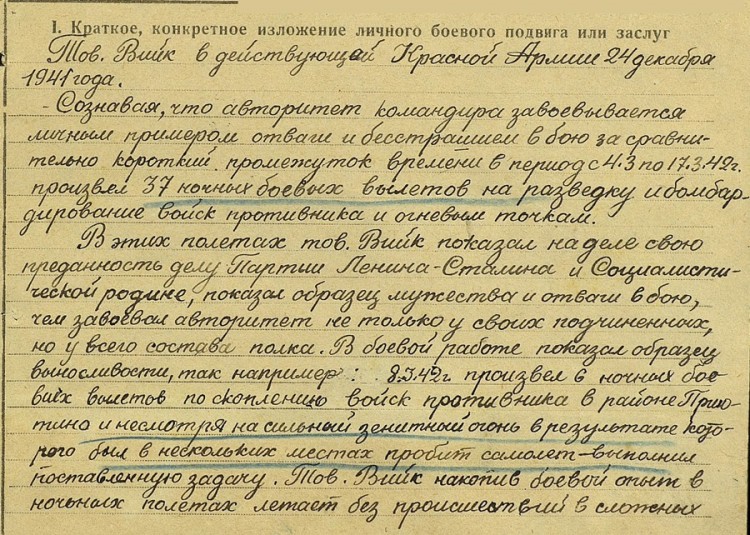 I. Краткое, конкретное изложение личного боевого подвига или заслуг
Тов. Вийк в действующей Красной Армии 24 декабря
1941 года.
- Сознавая, что авторитет командира завоевывается
личным примером отваги и бесстрашием в бою за сравни-
тельно короткий промежуток времени в период с 4.3 по 17.3.42г.
произвел 37 ночных боевых вылетов на разведку и бомбар-
дирование войск противника и огневым точкам.
В этих полетах тов. Вийк показал на деле свою
преданность делу Партии Ленина-Сталина и Социалисти-
ческой родине, показал образец мужества и отваги в бою,
чем завоевал авторитет не только у своих подчиненных,
но у всего состава полка. В боевой работе показал образец
выносливости, так например: 8.3.42г. произвел 6 ночных бое
вых вылетов по скоплению войск противника в районе
и несмотря на сильный зенитный огонь в результате кото-
рого был в нескольких местах пробит самолет-выполнил
поставленную задачу. Тов. Вийк накопив боевой опыт в
ночных полетах летает без происшествий в сложных